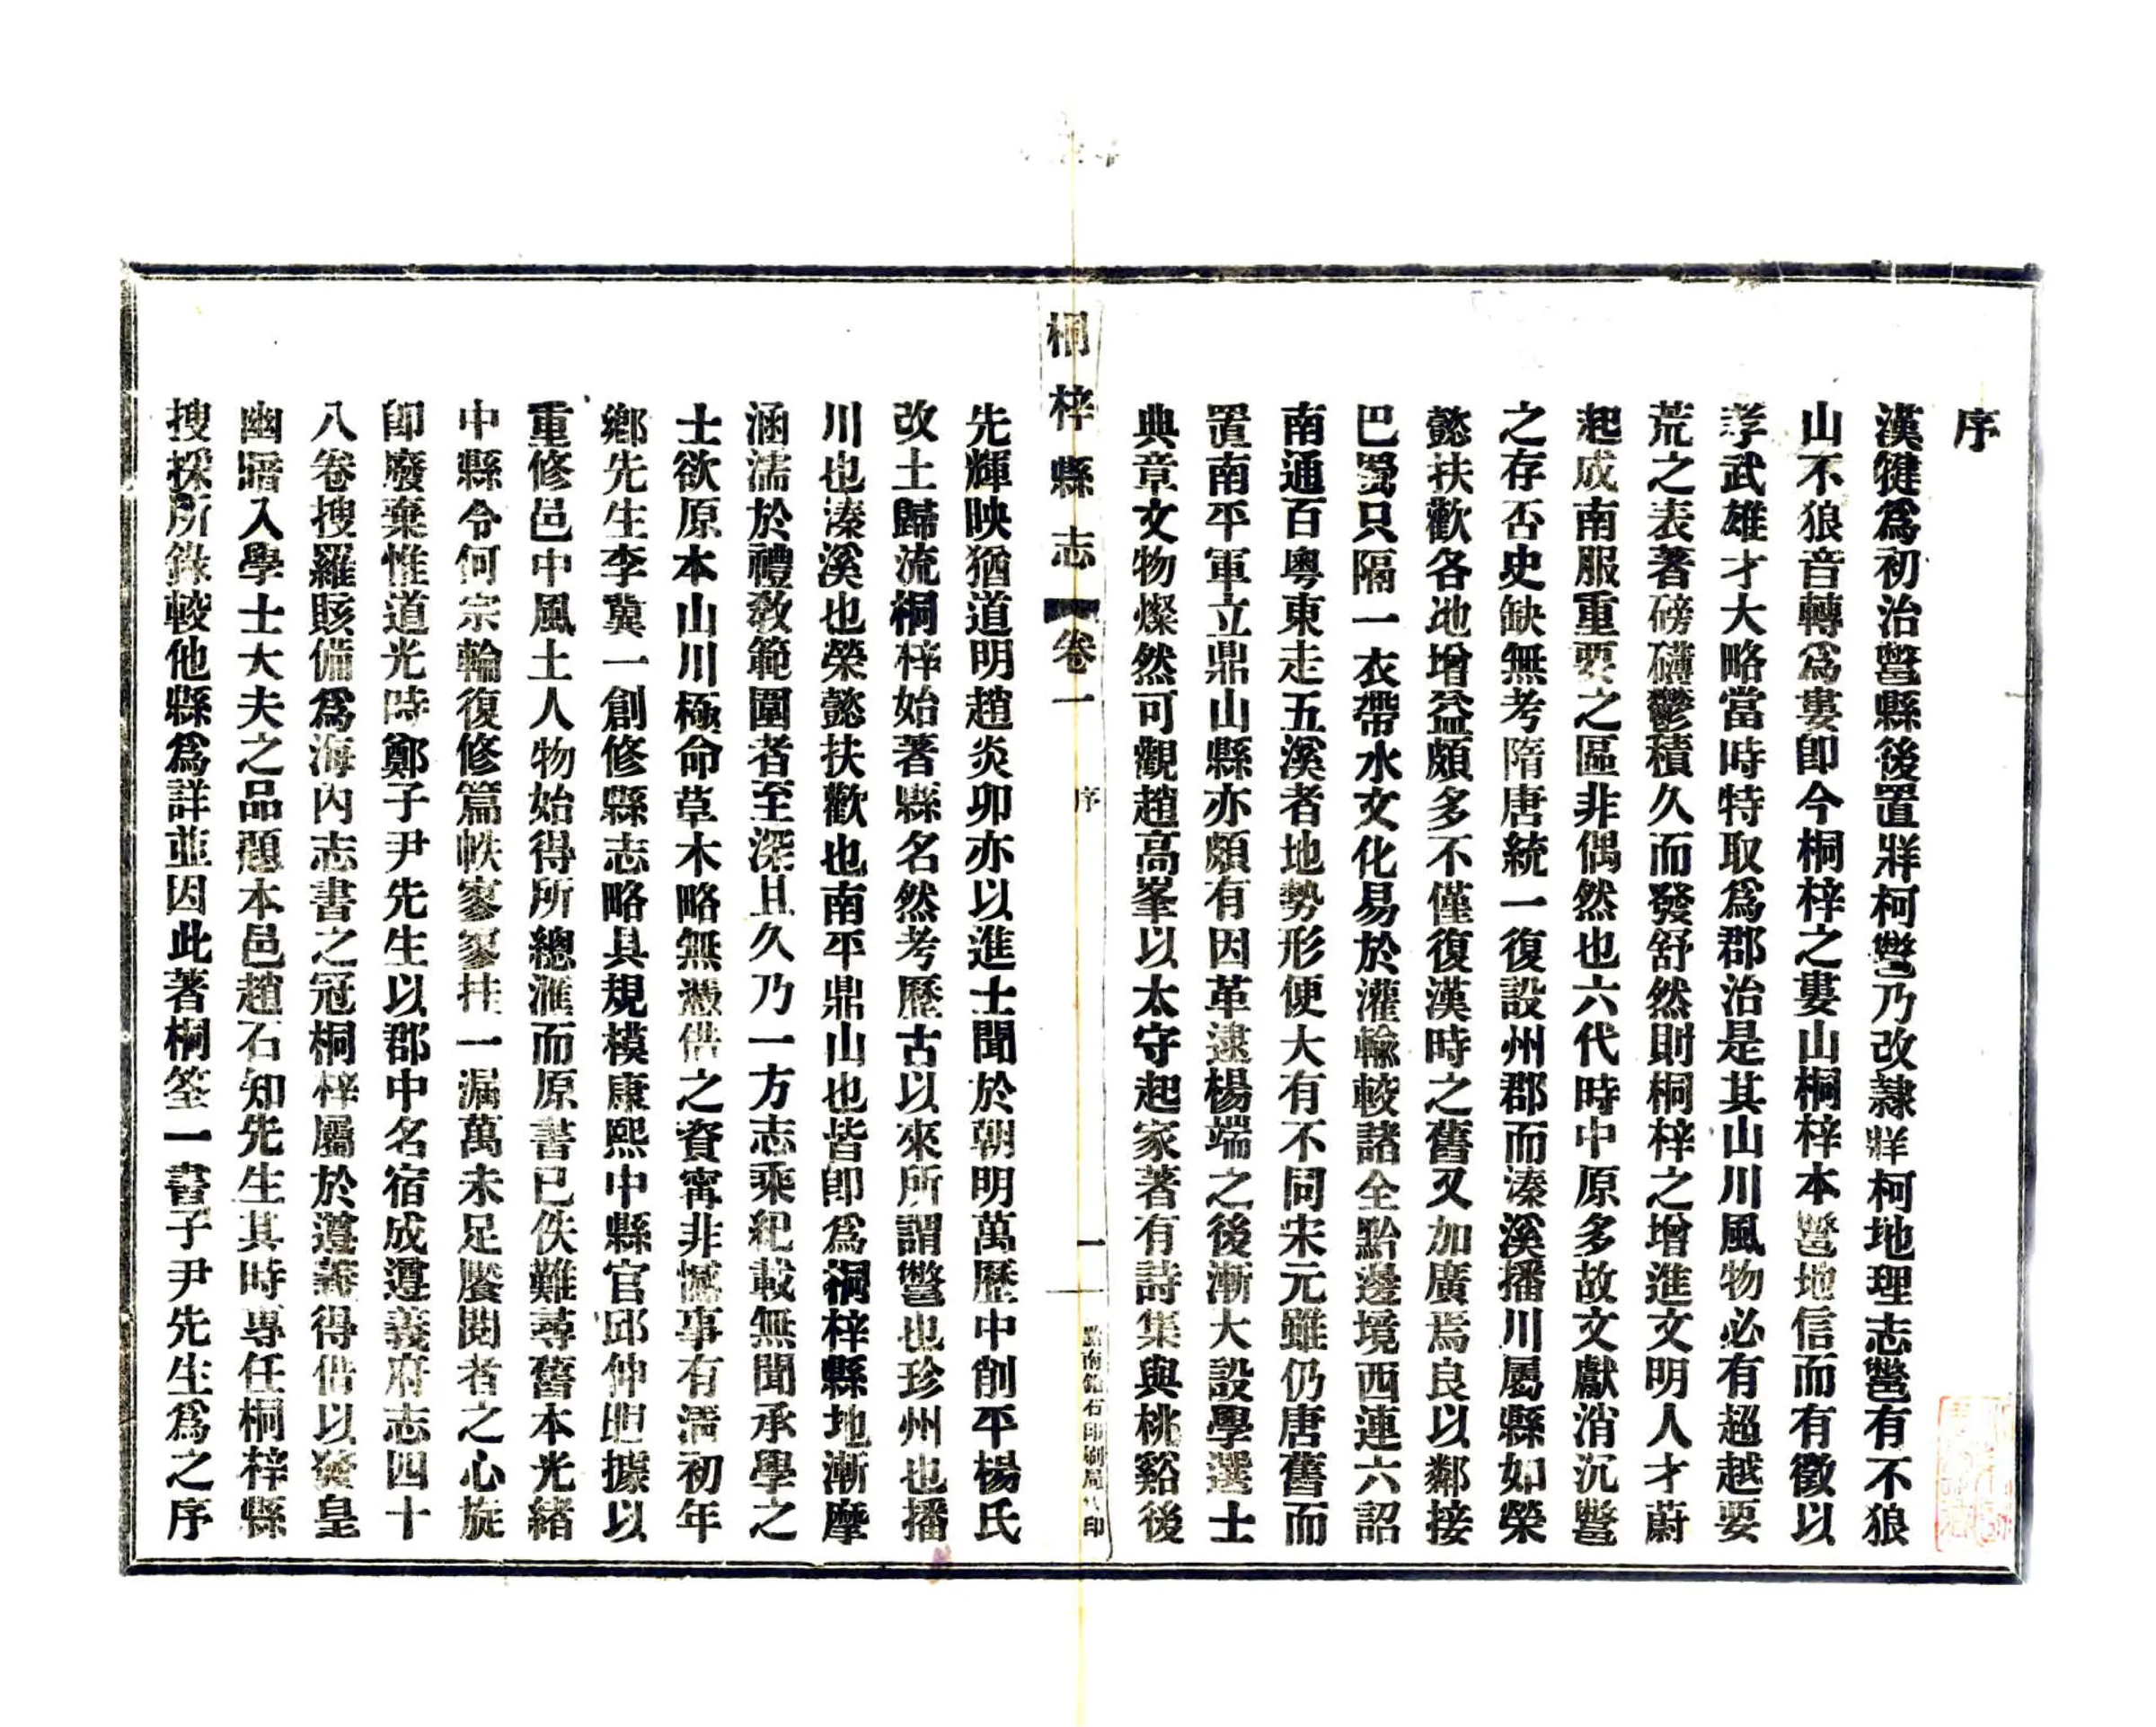 序
漢犍爲初治鄨縣後置牂柯鄨乃改隸牂柯地理志鄨有不狼
山不狼音轉爲婁卽今桐梓之婁山桐梓本鄨地信而有徵以
孝武雄才大略當時特取爲郡治是其山川風物必有超越要
荒之表著磅礴鬱積久而發舒然則桐梓之增進文明人才蔚
起成南服重要之區非偶然也六代時中原多故文獻消沉鄨
之存否史缺無考隋唐統一復設州郡而溱溪播川屬縣如榮
懿扶歡各地增益頗多不僅復漢時之舊又加廣焉良以鄰接
巴蜀只隔一衣帶水文化易於灌輸較諸全黔邊境西連六詔
南通百粵東走五溪者地勢形便大有不同宋元雖仍唐舊而
置南平軍立鼎山縣亦頗有因革逮楊端之後漸大設學選士
典章文物燦然可觀趙高峯以太守起家著有詩集與桃谿後
桐梓縣志 卷一 序 一
先輝映猶道明趙炎卯亦以進士聞於朝明萬歷中削平楊氏
改土歸流桐梓始著縣名然考歷古以來所謂鄨也珍州也播
川也溱溪也榮懿扶歡也南平鼎山也皆卽爲桐梓縣地漸摩
涵濡於禮敎範圍者至深且久乃一方志乘紀載無聞承學之
士欲原本山川極命草木略無憑借之資寧非憾事有淸初年
鄉先生李冀一創修縣志略具規模康熙中縣官邱仲䏚據以
重修邑中風土人物始得所總滙而原書已佚難尋舊本光緒
中縣令何宗輪復修篇帙寥寥挂一漏萬未足饜閱者之心旋
卽廢棄惟道光時鄭子尹先生以郡中名宿成遵義府志四十
八卷搜羅賅備爲海內志書之冠桐梓屬於遵義得借以發皇
幽暗入學士大夫之品題本邑趙石知先生其時專任桐梓縣
搜採所錄較他縣爲詳並因此著桐筌一書子尹先生爲之序